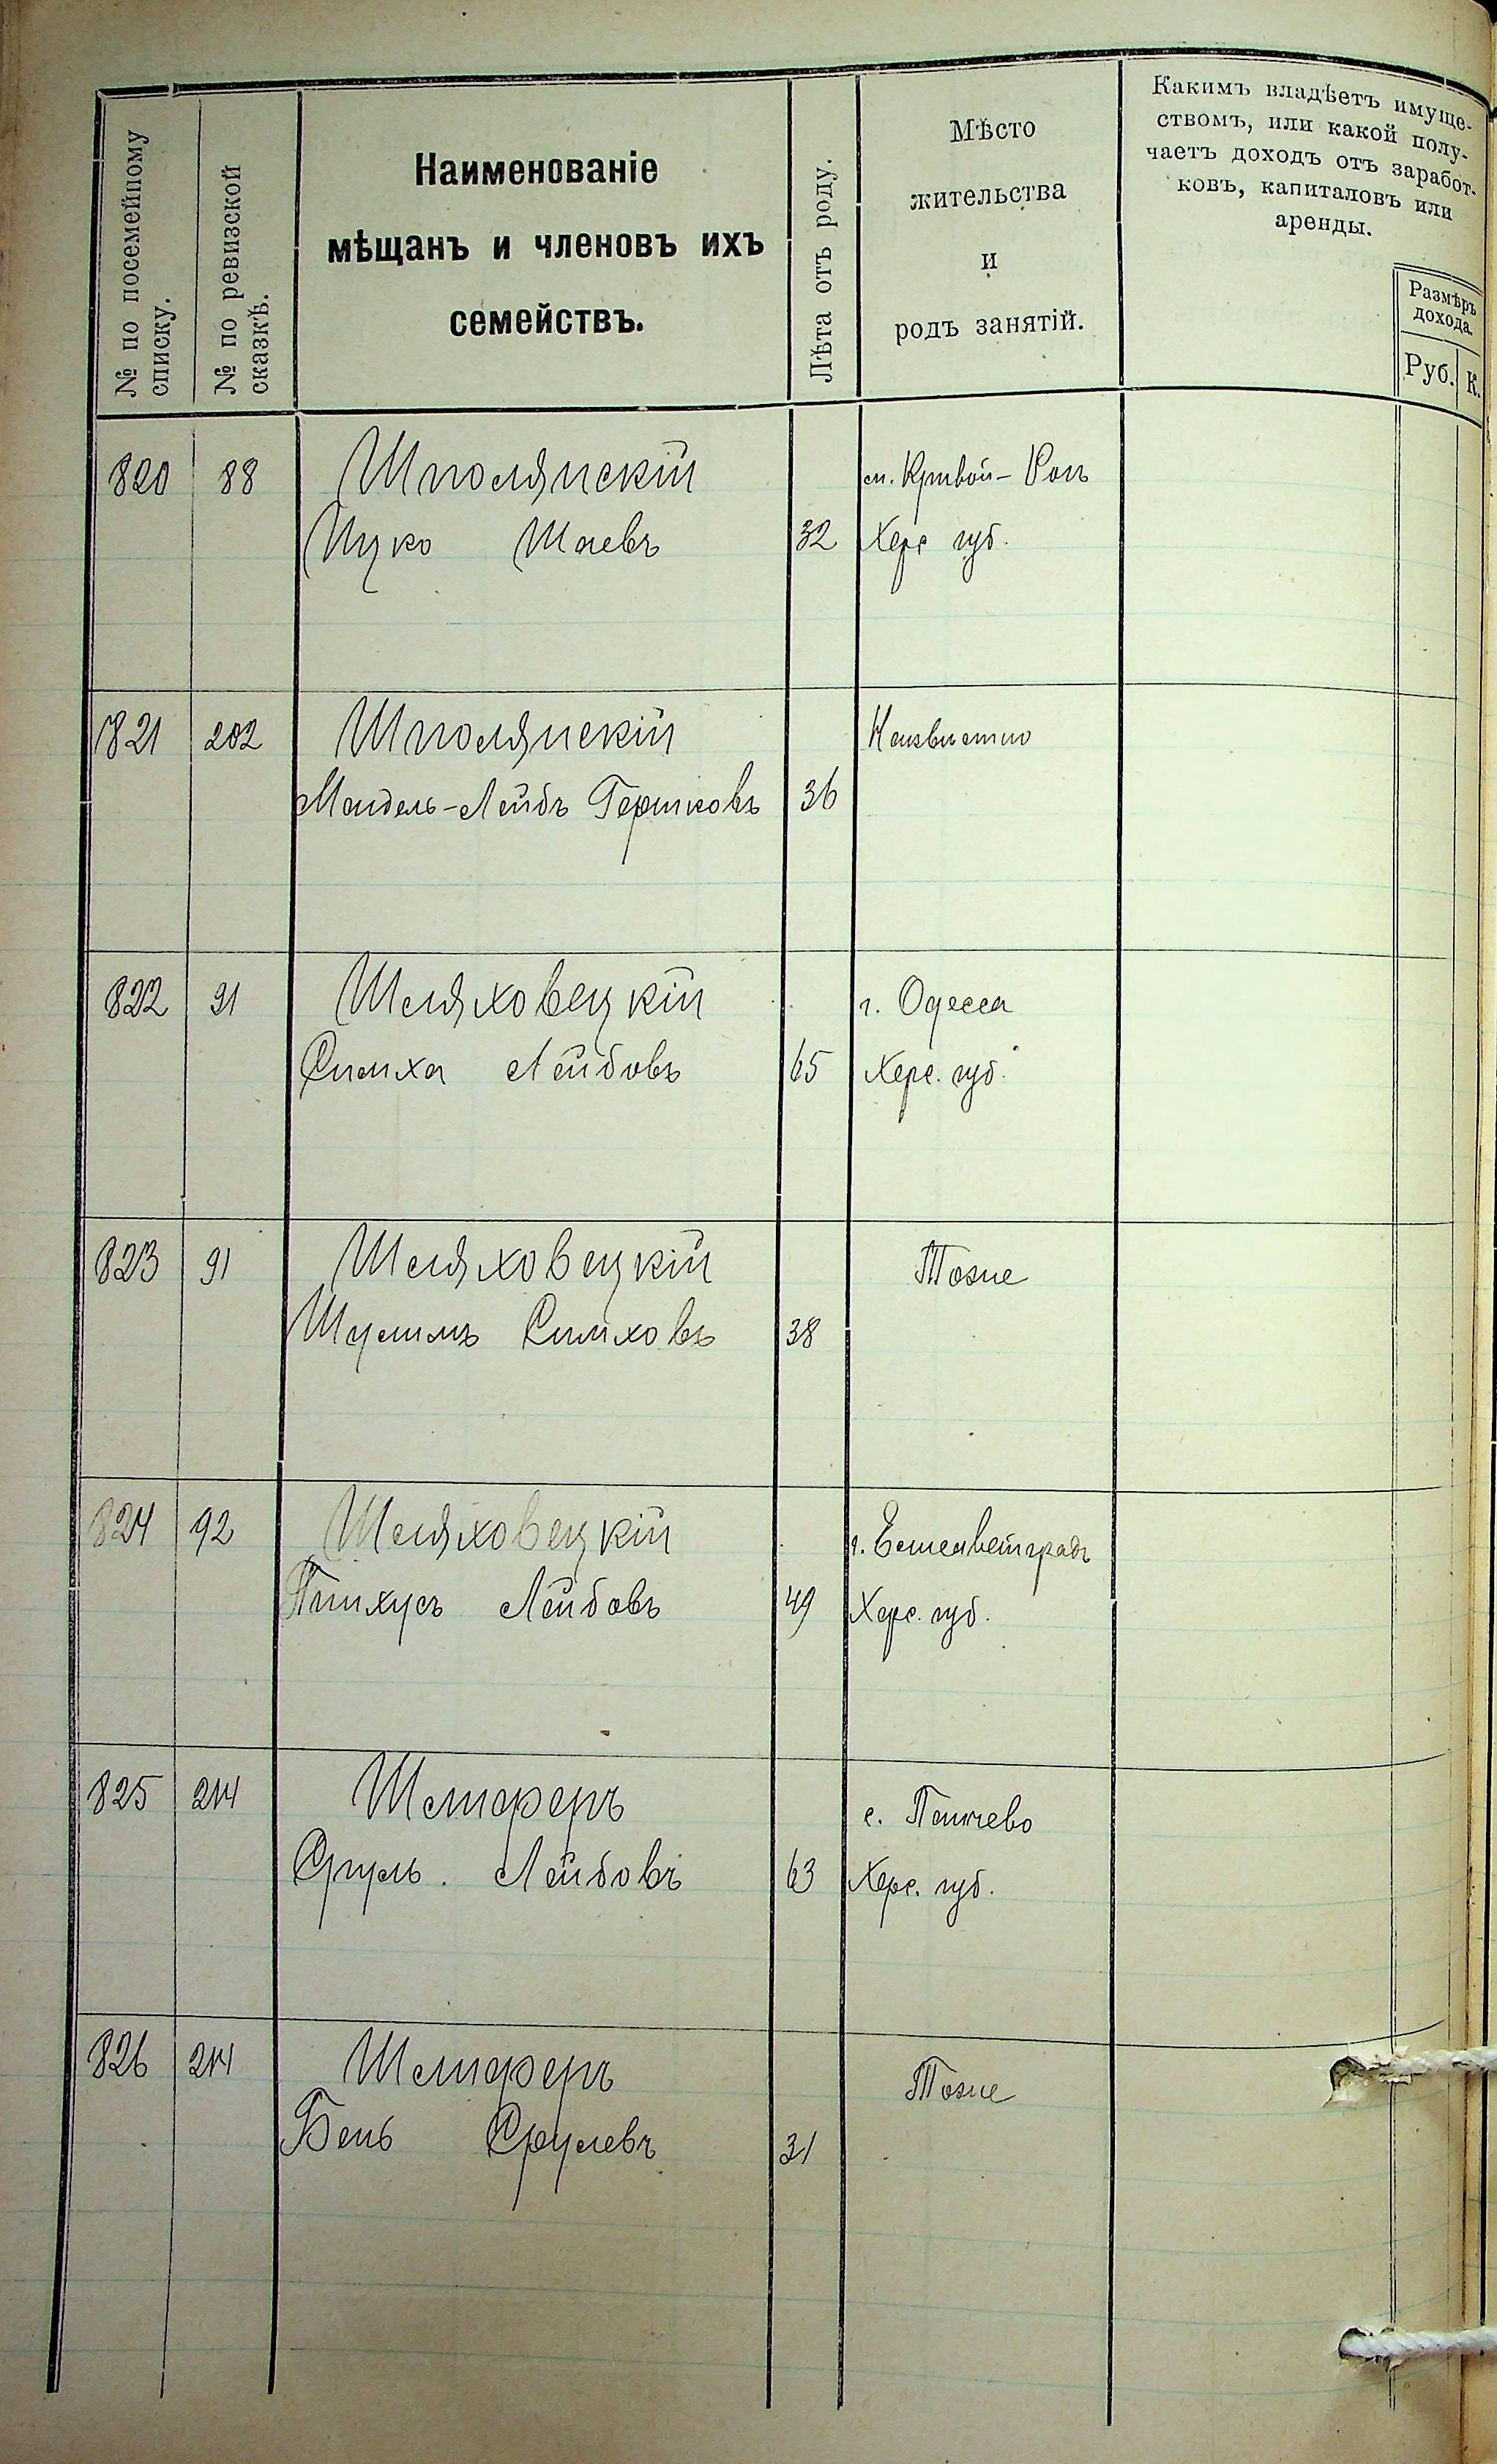 № по посемейному
списку.
№ по ревизской
сказкѣ.
Наименованіе
мѣщанъ и членовъ ихъ
семействъ.
Лѣта отъ роду.
Мѣсто
жительства
и
родъ занятій.
Какимъ владѣетъ имуще-
ствомъ, или какой полу-
чаетъ доходъ отъ заработ-
ковъ, капиталовъ или
аренды.
Размѣръ
дохода.
Руб. К.
820 88 Шполянскій м. Кривой-Рогъ
Ицко Шаевъ 32 Херс губ.
821 202 Шполянскій Неизвѣстно
Мандель-Лейбъ Гершковъ 36
822 91 Шеляховецкій г. Одесса
Симха Лейбовъ 65 Херс. губ.
823 91 Шеляховецкій Тоже
Шулимъ Симховъ 38
824 92 Шеляховецкій г. Елисаветградъ
Пинхусъ Лейбовъ 49 Херс. губ.
825 214 Шлиферъ с. Панчево
Сруль. Лейбовъ 63 Херс. губ.
826 214 Шлиферъ Тоже
Бень Срулевъ 31